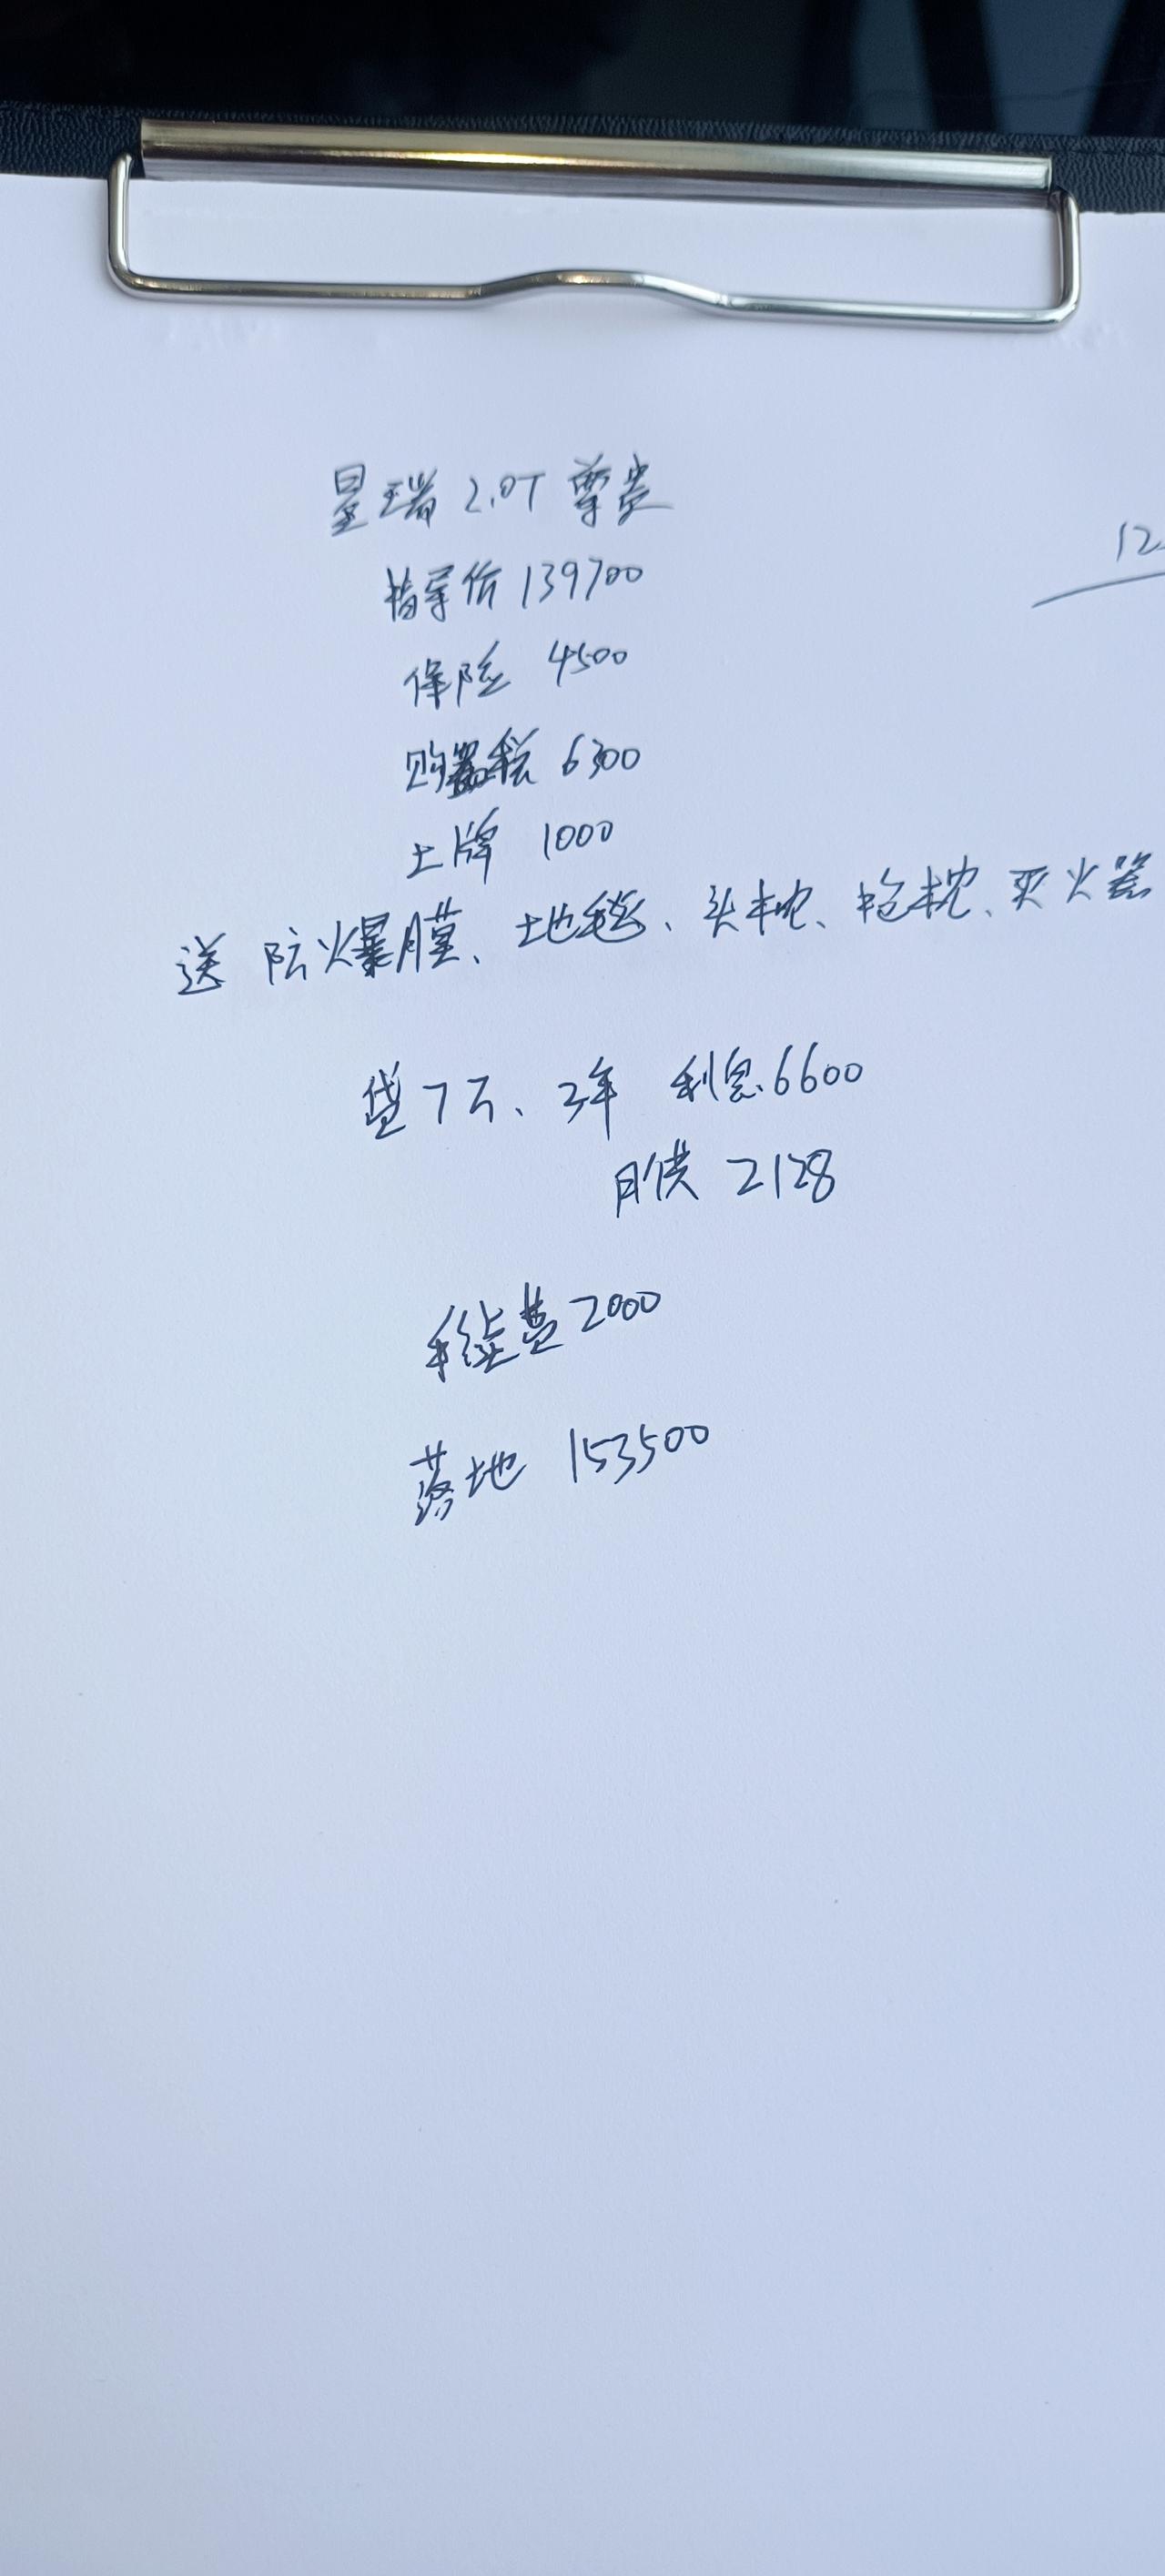 星瑞 2.0T 尊贵
12
指导价 139700
保险 4500
购置税 6300
上牌 1000
送 防爆膜、地毯、头枕、抱枕、灭火器
贷7万、3年 利息6600
月供 2128
手续费2000
落地 153500